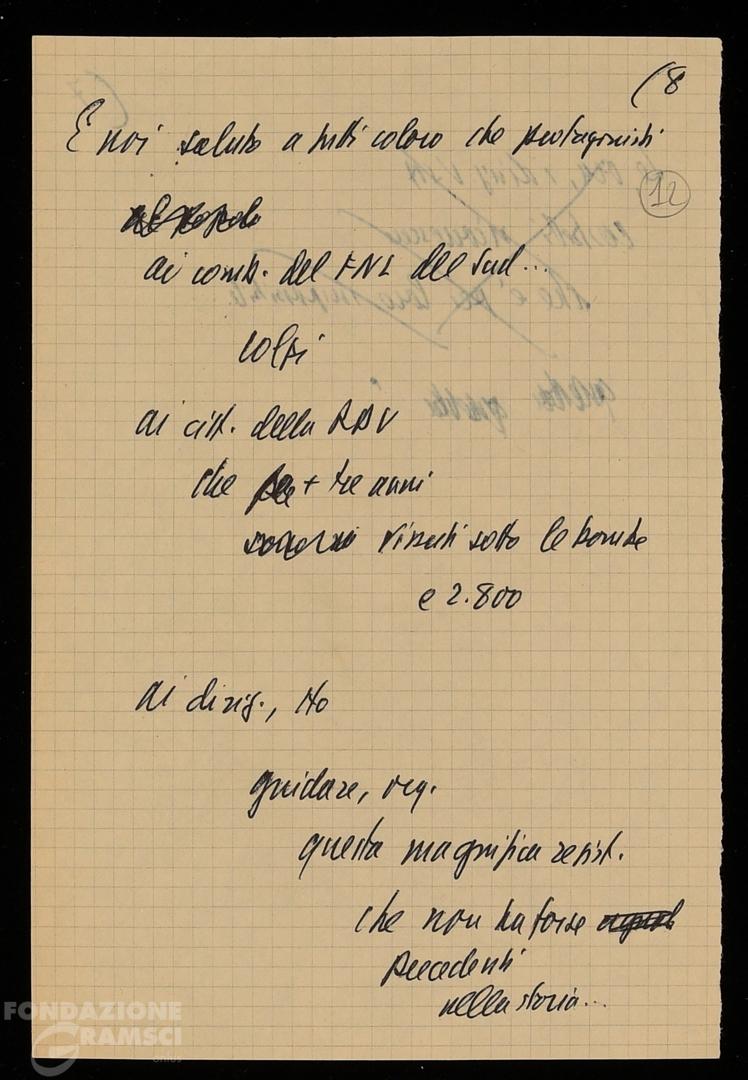 (8
E noi saluto a tutti coloro che protagonisti
12
al popolo
ai comb. del FNL del Sud...
colpi
ai citt. della RDV
che per + tre anni
vissuti sotto le bombe
e 2.800
Ai dirig., Ho
guidare, org.
questa magnifica resist.
che non ha forse
precedenti
nella storia...
FONDAZIONE
GRAMSCI
onlus